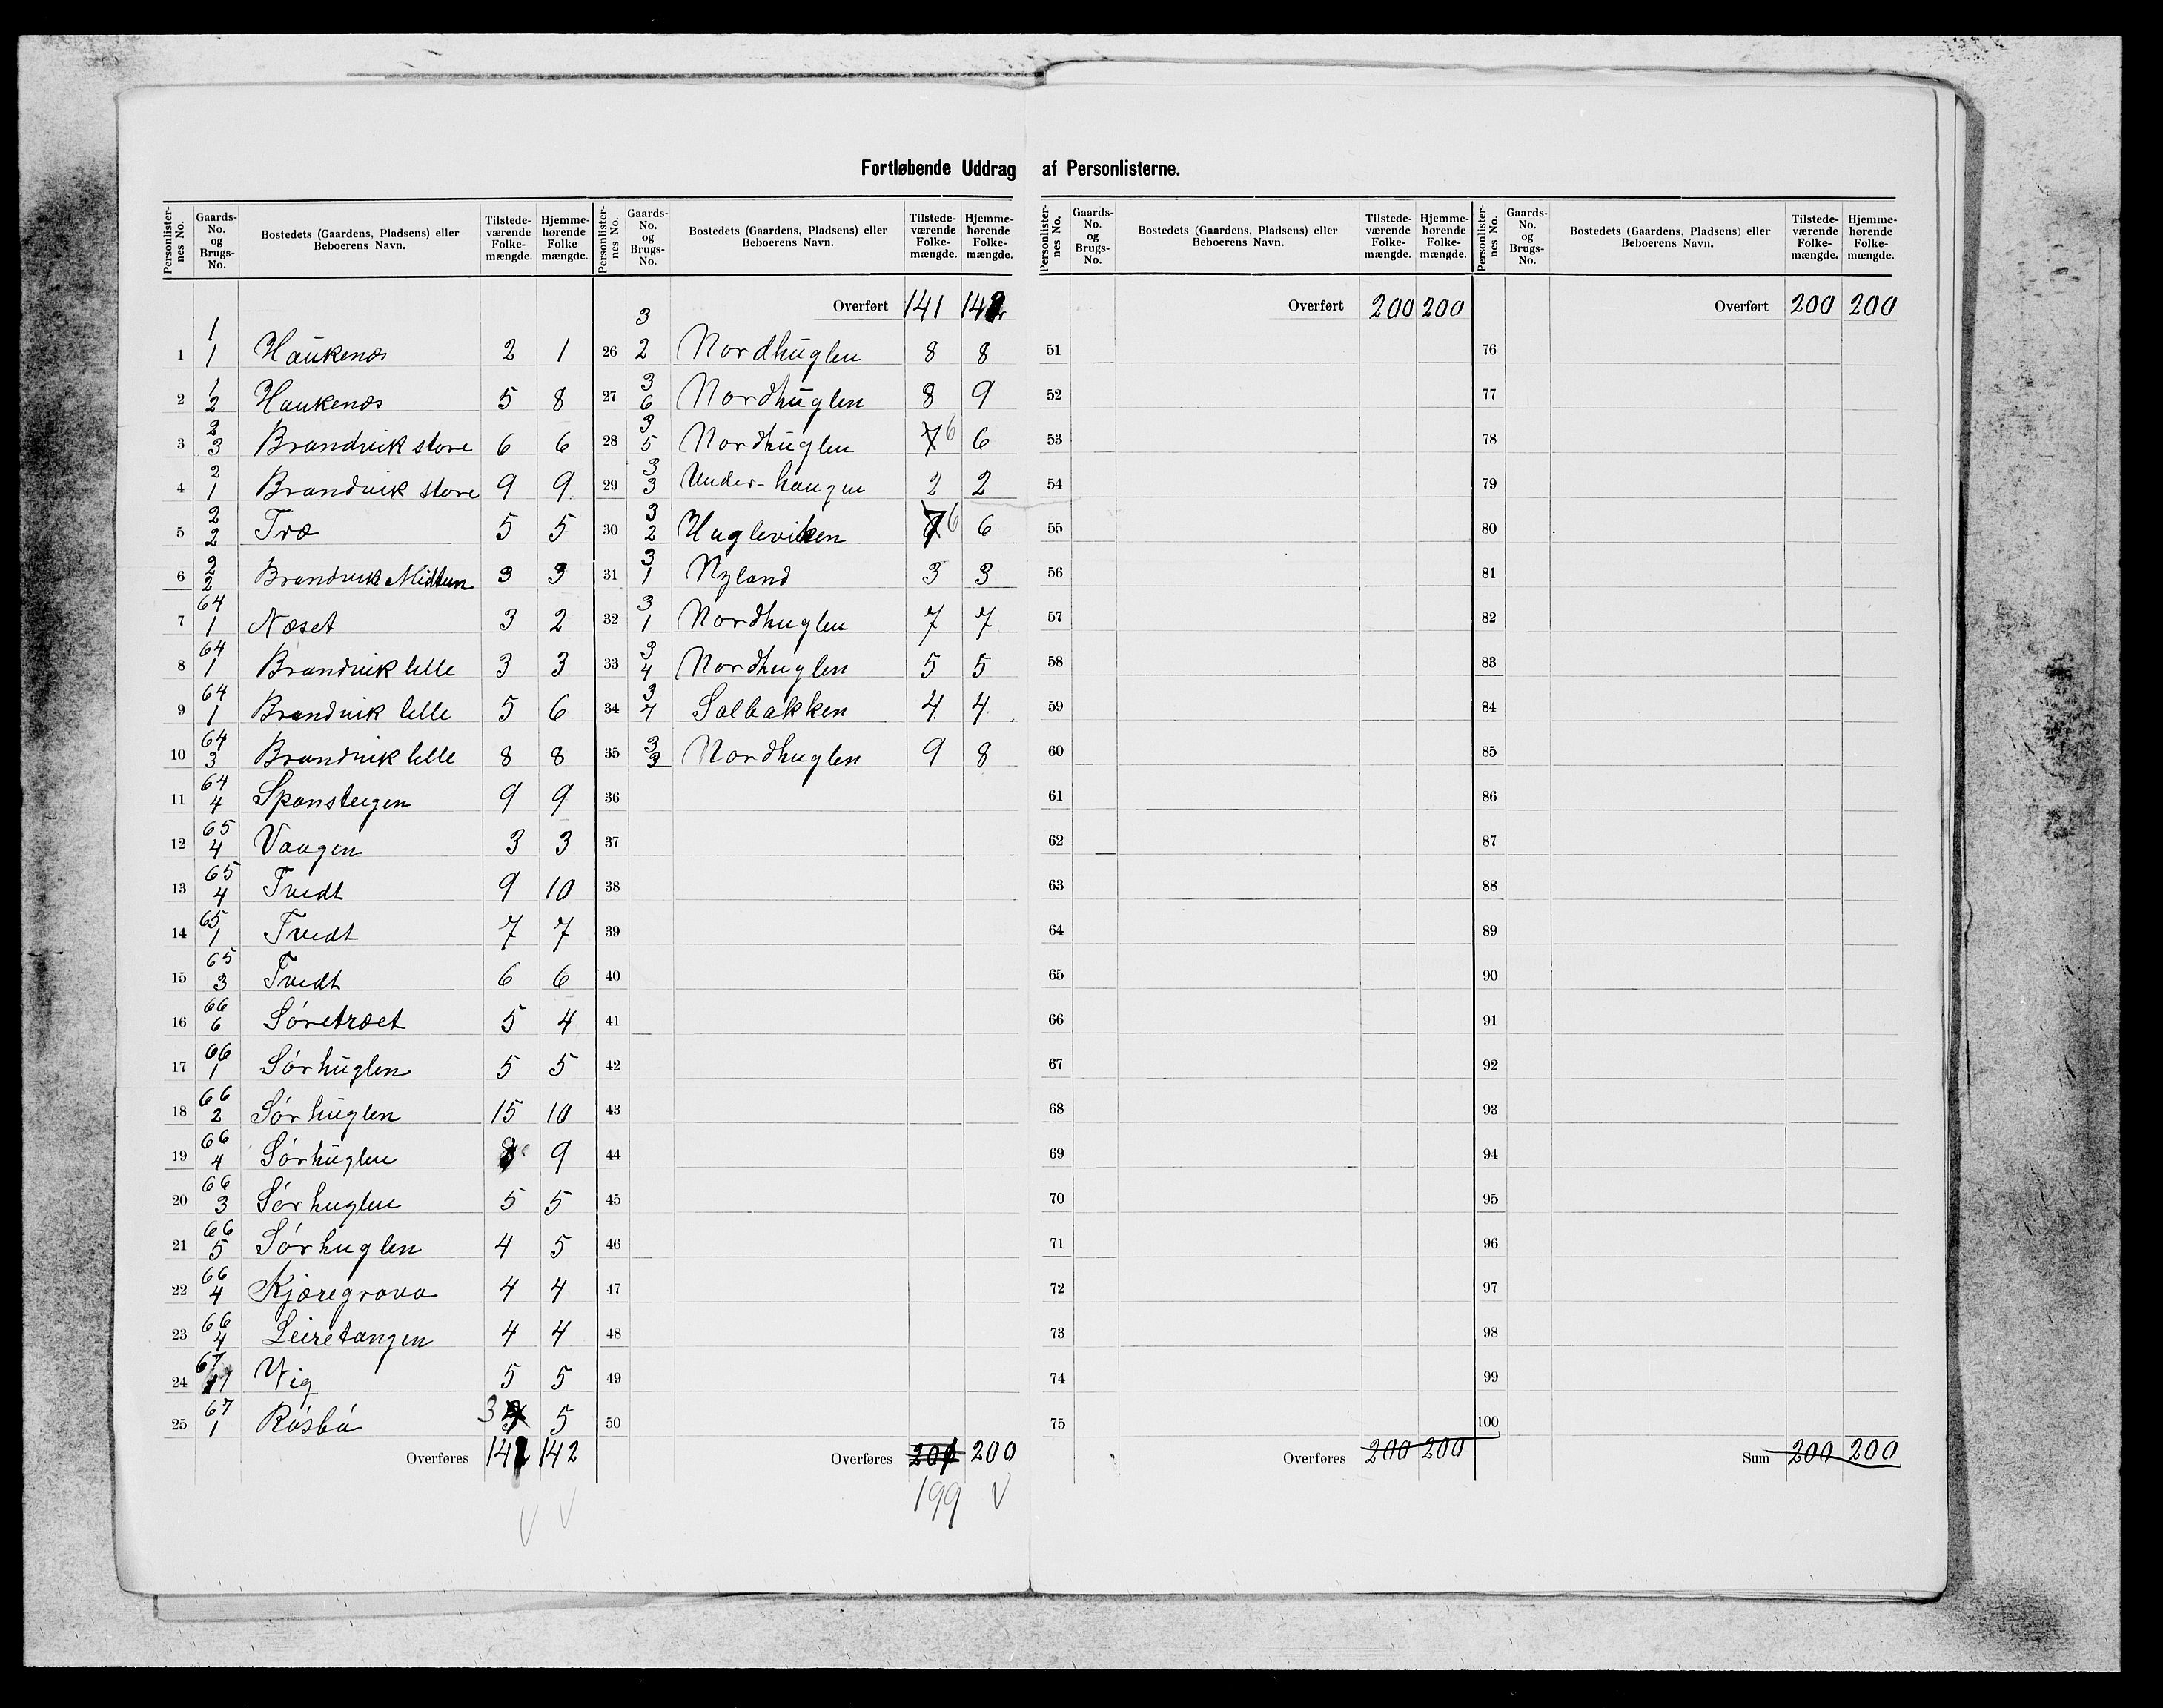 Fortløbende Uddrag af Personlisterne.
Personlisternes No. Gaards-No. og Brugs-No. Bostedets (Gaardens, Pladsens) eller Beboerens Navn. Tilstedeværende Folkemængde. Hjemmehørende Folkemængde.
1 1/1 Haukenæs 2 1
2 1/2 Haukenæs 5 8
3 2/3 Brandvik store 6 6
4 2/1 Brandvik store 9 9
5 2/2 Træ 5 5
6 2/2 Brandvik Midtun 3 3
7 64/1 Næset 3 2
8 64/1 Brandvik lille 3 3
9 64/1 Brandvik lille 5 6
10 64/3 Brandvik lille 8 8
11 64/4 Spansteigen 9 9
12 65/4 Vaagen 3 3
13 65/4 Tvedt 9 10
14 65/1 Tvedt 7 7
15 65/3 Tvedt 6 6
16 66/6 Søretræet 5 4
17 66/1 Sørhuglen 5 5
18 66/2 Sørhuglen 15 10
19 66/4 Sørhuglen 8 9
20 66/3 Sørhuglen 5 5
21 66/5 Sørhuglen 4 5
22 66/4 Kjæregrava 4 4
23 66/4 Leiretangen 4 4
24 67/1 Vig 5 5
25 67/1 Røsbø 3 5
Overføres 142
Personlisternes No. Gaards-No. og Brugs-No. Bostedets (Gaardens, Pladsens) eller Beboerens Navn. Tilstedeværende Folkemængde. Hjemmehørende Folkemængde.
Overført 141
26 3/2 Nordhuglen 8 8
27 3/6 Nordhuglen 8 9
28 3/5 Nordhuglen 7 6 6
29 3/3 Under-haugen 2 2
30 3/2 Huglevikken 7 6 6
31 3/1 Nyland 3 3
32 3/1 Nordhuglen 7 7
33 3/4 Nordhuglen 5 5
34 3/7 Solbakken 4 4
35 3/3 Nordhuglen 9 8
36
37
38
39
40
41
42
43
44
45
46
47
48
49
50
Overføres 201 200
199 V
Personlisternes No. Gaards-No. og Brugs-No. Bostedets (Gaardens, Pladsens) eller Beboerens Navn. Tilstedeværende Folkemængde. Hjemmehørende Folkemængde.
Overført 200 200
51
52
53
54
55
56
57
58
59
60
61
62
63
64
65
66
67
68
69
70
71
72
73
74
75
Overføres 200 200
Personlisternes No. Gaards-No. og Brugs-No. Bostedets (Gaardens, Pladsens) eller Beboerens Navn. Tilstedeværende Folkemængde. Hjemmehørende Folkemængde.
Overført 200 200
76
77
78
79
80
81
82
83
84
85
86
87
88
89
90
91
92
93
94
95
96
97
98
99
100
Sum 200 200